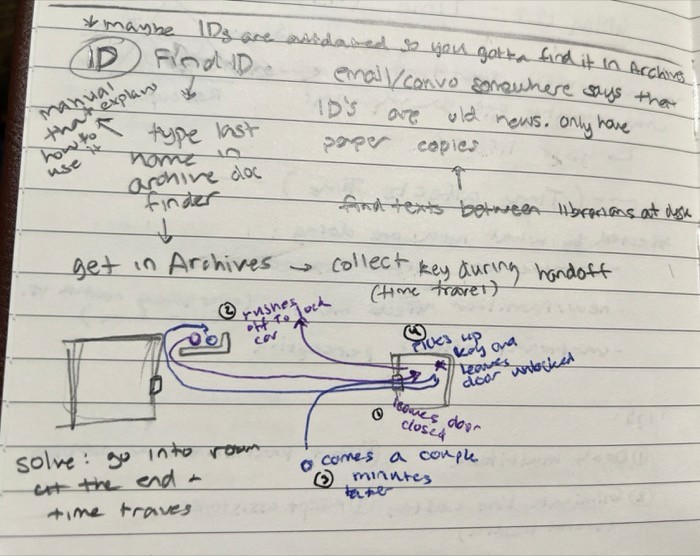 * maybe IDs are outdated so you gotta find it in Archive
ID Find ID
email/convo somewhere says that
ID's are old news. only have
paper copies
find texts between librarians at desk
manual
that explains
how to
use it
type last
name in
archive doc
finder
get in Archives → collect key during handoff
(time travel)
② rushes
off to lock
car
④ picks up
key and
leaves
door unlocked
① leaves door
closed
comes a couple
③ minutes
later
solve: go into room
at the end +
time traves